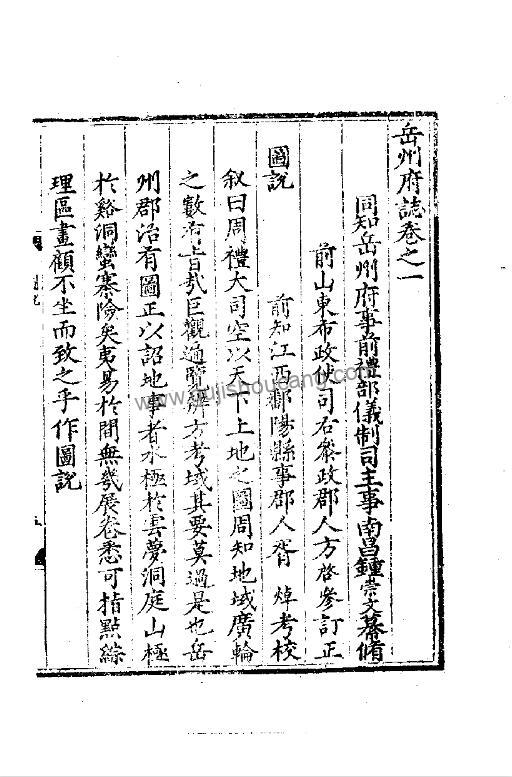 岳州府誌卷之一
同知岳州府事前禮部儀制司主事南昌鍾崇文纂脩
前山東布政使司右叅政郡人方啓參訂正
前知江西鄱陽縣事郡人胥焯考校
圖説
叙曰周禮大司空以天下土地之圖周知地域廣輪
之數若吉哉巨觀遍覽辨方考域其要莫過是也岳
州郡治有圖正以詔地事者水極於雲夢洞庭山極
於谿洞蠻寨險矣夷易於間無幾展卷悉可指點綜
理區畫顧不坐而致之乎作圖説